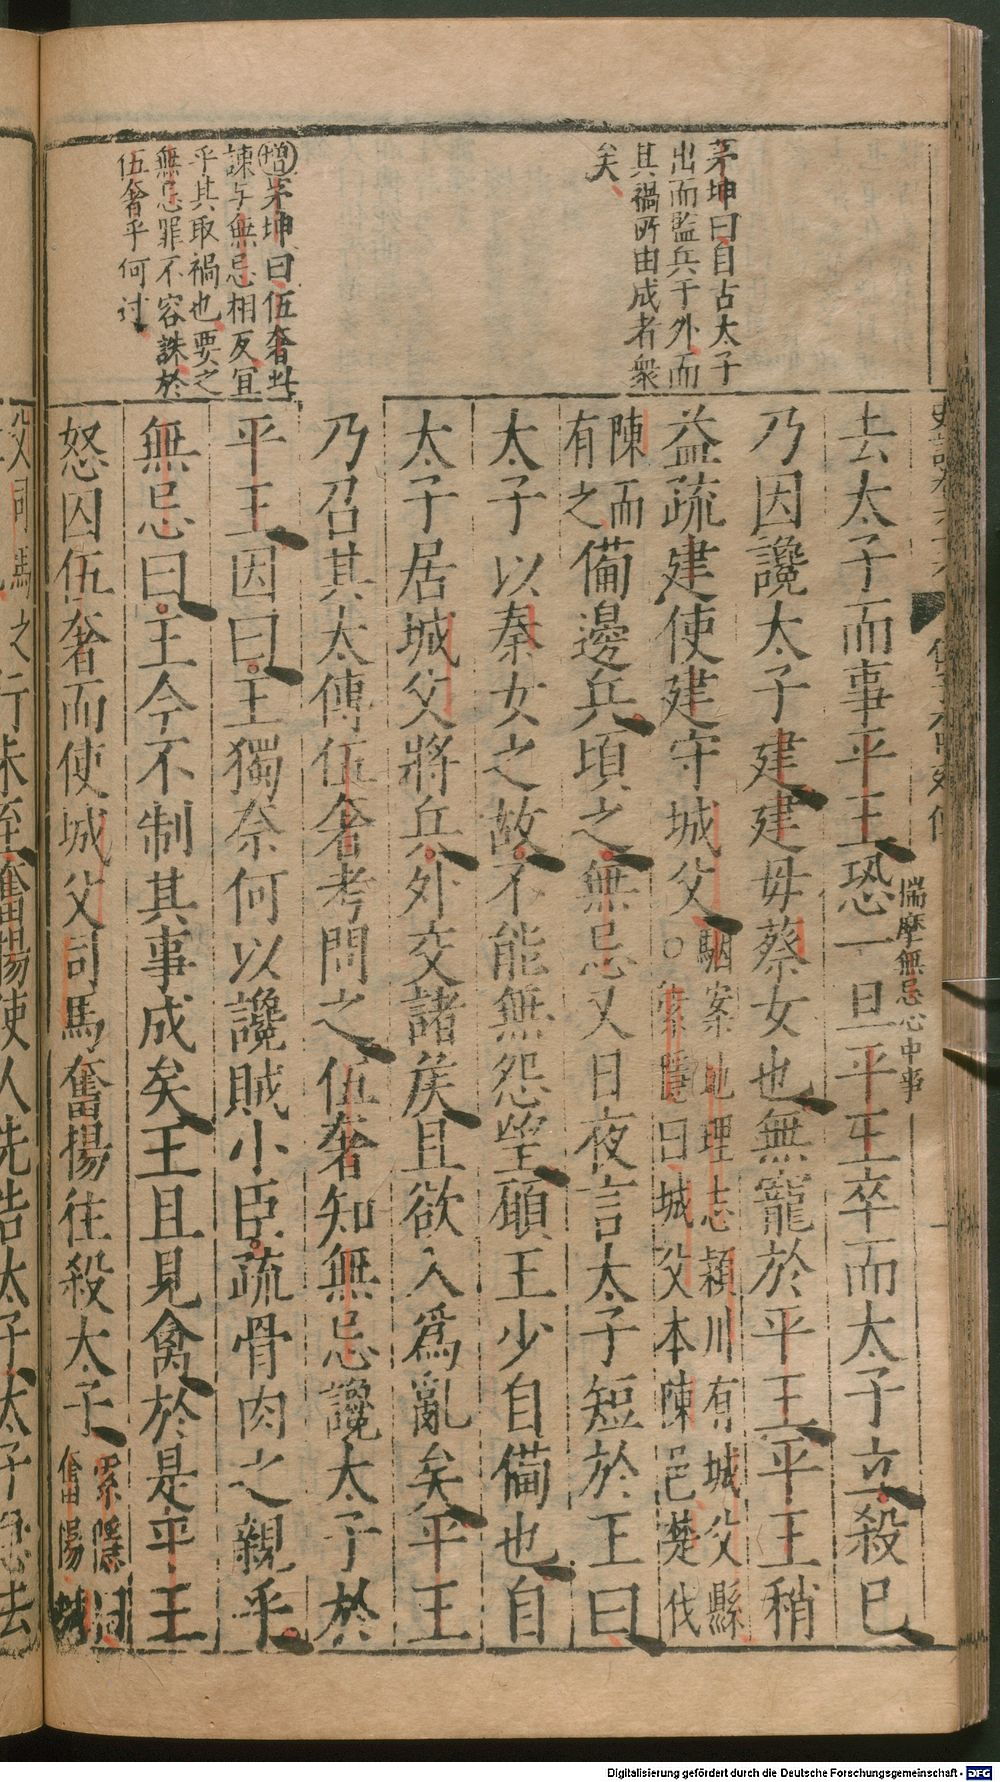 茅坤曰自古太子
出而監兵于外而
其禍所由成者衆
矣
增茅坤曰伍奢此
諫与無忌相反冝
乎其取禍也要之
無忌罪不容誅於
伍奢乎何討
去太子而事平王恐一旦平王卒而太子立殺已
揣摩無忌心中事
乃因讒太子建建母蔡女也無寵於平王平王稍
益疏建使建守城父
駰案地理志潁川有城父縣
○索隱曰城父本陳邑楚伐
陳而
有之
備邊兵頃之無忌又日夜言太子短於王曰
太子以秦女之故不能無怨望願王少自備也自
太子居城父將兵外交諸矦且欲入爲亂矣平王
乃召其太傅伍奢考問之伍奢知無忌讒太子於
平王因曰王獨奈何以讒賊小臣疏骨肉之親乎
無忌曰王今不制其事成矣王且見禽於是平王
怒囚伍奢而使城父司馬奮揚往殺太子
索隱曰
奮揚城
父司馬之
行未至奮揚使人先告太子太子急去
Digitalisierung gefördert durch die Deutsche Forschungsgemeinschaft - DFG